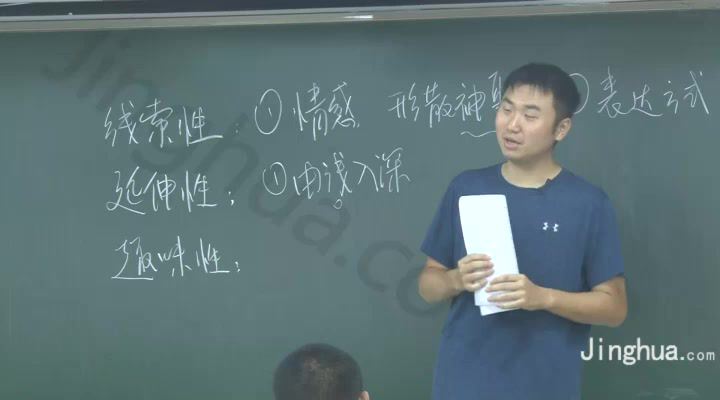 线索性：①情感 形散神 表达方式
延伸性：①由浅入深
趣味性：
Jinghua.com
Jinghua.com